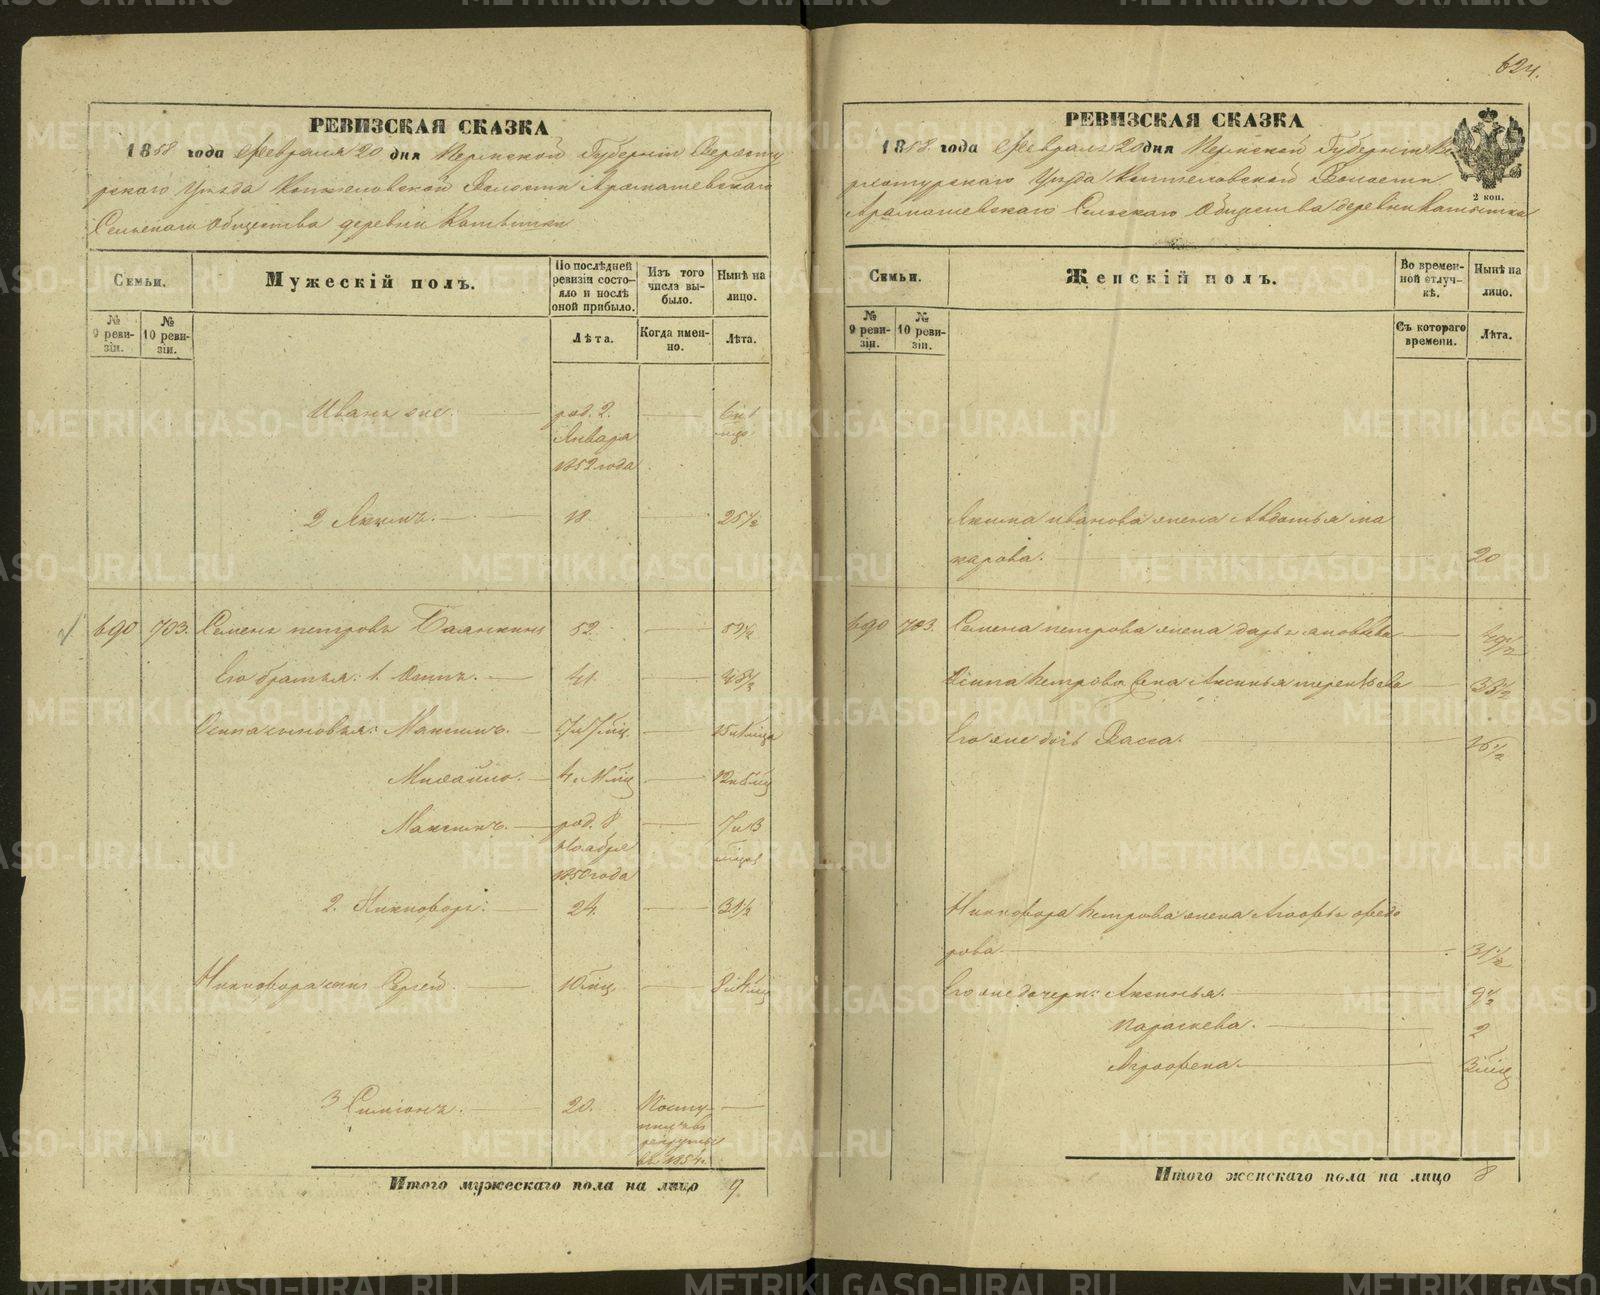 624.
РЕВИЗСКАЯ СКАЗКА
1858 года Февраля 20 дня Пермской Губерніи Верхоту
рскаго Уезда Коптеловской Волости Арамашевскаго
Сельскаго Общества деревни Катышки
Семьи.
Мужескій полъ.
По послѣдней ревизіи состояло и послѣ оной прибыло.
Изъ того числа выбыло.
Нынѣ на лицо.
№ 9 ревизіи.
№ 10 ревизіи.
Лѣта.
Когда именно.
Лѣта.
Иванъ же. род. 2. Января 1852 года
2 Якимъ. 18 25 1/2
690 703. Семенъ петровъ Балакинъ 52. 59 1/2
Его братья: 1. Осипъ. 41. 48 1/2
Осипа сыновья: Максимъ.
Михайло.
Максимъ. род. 8 Ноября 1850 года
2. Никифоръ. 24. 31 1/2
Никифора сынъ Сергей
3 Симіонъ. 20. Посту
пилъ въ
рекруты
въ 1854 г.
Итого мужескаго пола на лицо 9.
РЕВИЗСКАЯ СКАЗКА
1858 года Февраля 20 дня Пермской Губерніи Ве
рхотурскаго Уезда Коптеловской Волости
Арамашевскаго Сельскаго Общества деревни Катышки
2 коп.
Семьи.
Женскій полъ.
Во временной отлучкѣ.
Нынѣ на лицо.
№ 9 ревизіи.
№ 10 ревизіи.
Съ котораго времени.
Лѣта.
Якима иванова жена Авдотья ма
карова. 20
690 703. Семена петрова жена дарья 49 1/2
Осипа петрова жена Аксинья терентьева 38 1/2
Его же дочь Васса. 16 1/2
Никифора петрова жена федо
рова 31 1/2
Его же дочери: Аксинья. 9 1/2
Параскева. 2
Агрофена.
Итого женскаго пола на лицо 8
METRIKI.GASO-URAL.RU